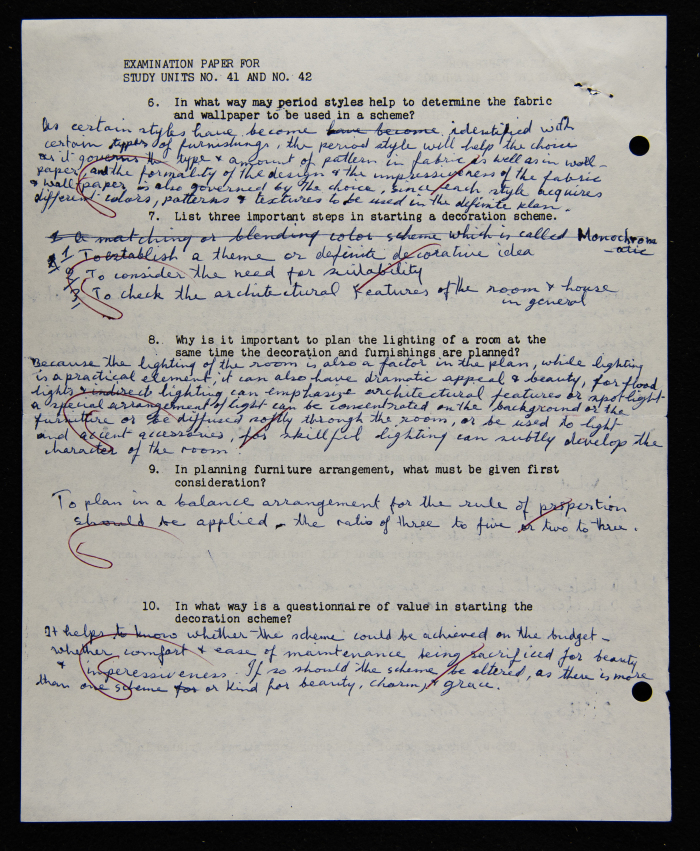 EXAMINATION PAPER FOR
STUDY UNITS NO. 41 AND NO. 42
6. In what way may period styles help to determine the fabric
and wallpaper to be used in a scheme?
As certain styles have become have become identified with
certain types of furnishings, the period style will help the choice
as it governs the type & amount of pattern in fabric as well as in wall-
paper, and the formality of the design & the impressiveness of the fabric
& wall paper is also governed by the choice, since each style acquires
different colors, patterns & textures to be used in the definite plan.
7. List three important steps in starting a decoration scheme.
1 a matching or blending color scheme which is called Monochrom
-atic
1 To establish a theme or definite decorative idea
2 To consider the need for suitability
3 To check the architectural features of the room & house
in general
8. Why is it important to plan the lighting of a room at the
same time the decoration and furnishings are planned?
Because the lighting of the room is also a factor in the plan, while lighting
is a practical element, it can also have dramatic appeal & beauty, for flood
lights & indirect lighting can emphasize architectural features or spotlight
a special arrangement of light can be concentrated on the background or the
furniture or be diffused softly through the room, or be used to light
and accent accessories, for skillful lighting can subtly develop the
character of the room.
9. In planning furniture arrangement, what must be given first
consideration?
To plan in a balance arrangement for the rule of proportion
should be applied - the ratio of three to five or two to three.
10. In what way is a questionnaire of value in starting the
decoration scheme?
It helps to know whether the scheme could be achieved on the budget -
whether comfort & ease of maintenance being sacrificed for beauty
& imperessiveness. If so should the scheme be altered, as there is more
than one scheme for or kind for beauty, charm, & grace.